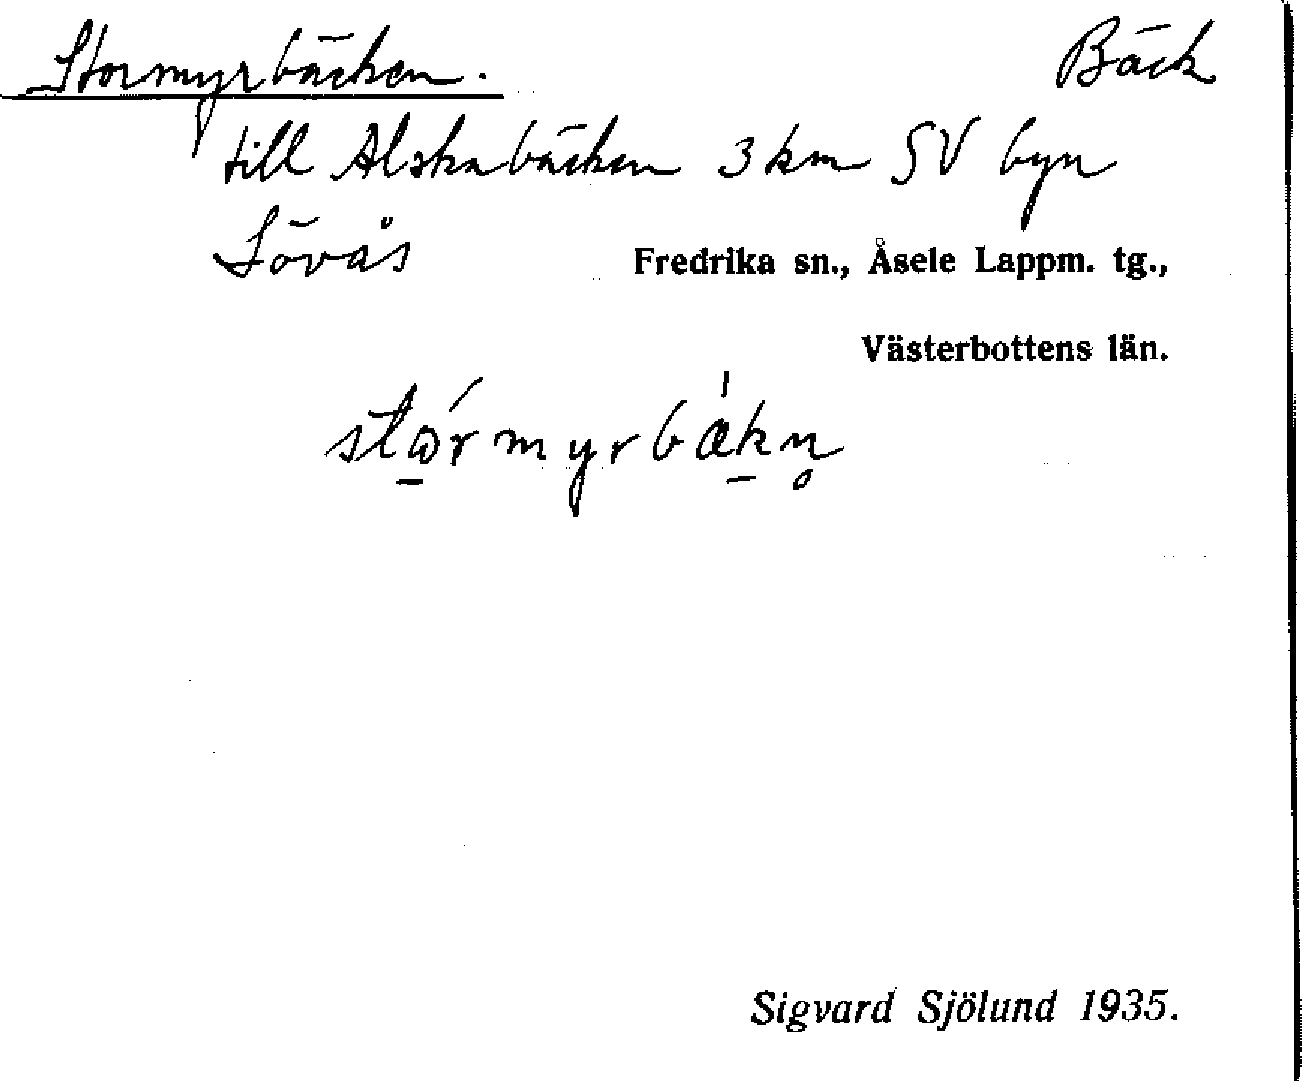 Stormyrbäcken. Bäck
till Alskabäcken 3 km SV byn
Lövås
Fredrika sn., Åsele Lappm. tg.,
Västerbottens län.
stɷ̠́rmyrbæ̍k̠n̥
Sigvard Sjölund 1935.